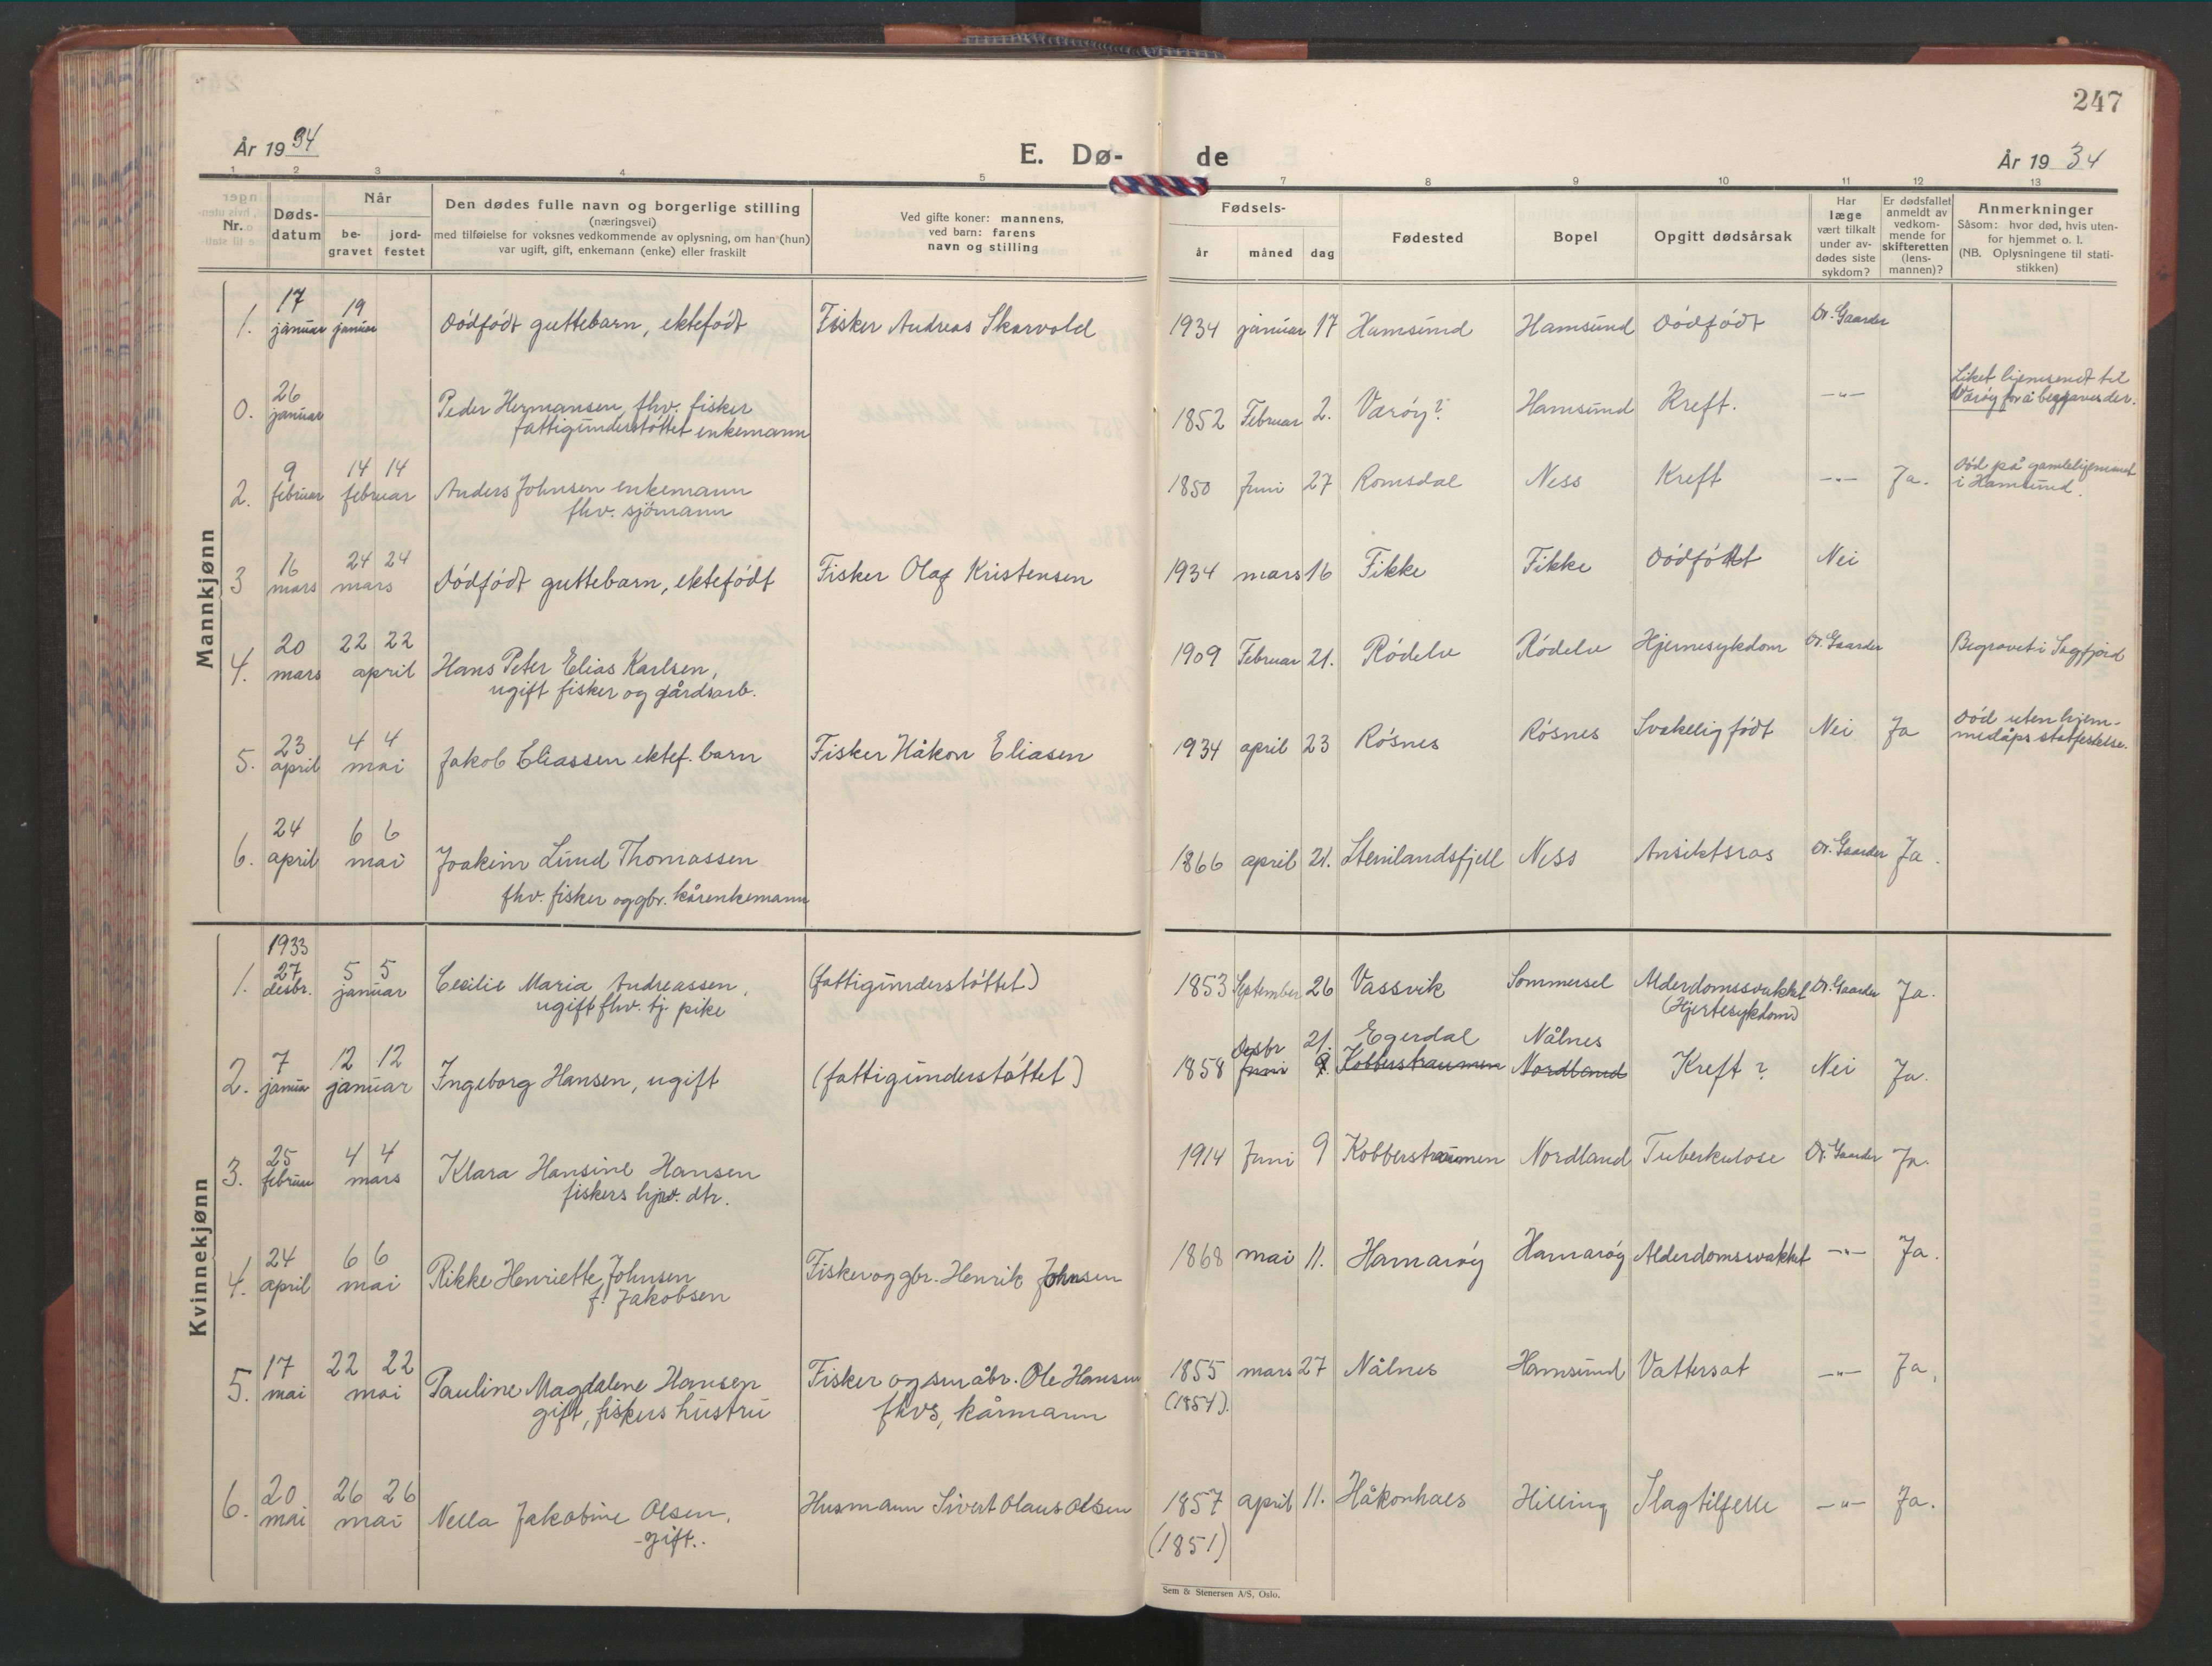 247
År 1934
E. Dø-
de
År 1934
1 2 3 4 5 7 8 9 10 11 12 13
Nr.
Døds-
datum
Når
be-
gravet
jord-
festet
Den dødes fulle navn og borgerlige stilling
(næringsvei)
med tilføielse for voksnes vedkommende av oplysning, om han (hun)
var ugift, gift, enkemann (enke) eller fraskilt
Ved gifte koner: mannens,
ved barn: farens
navn og stilling
Fødsels-
år
måned
dag
Fødested
Bopel
Opgitt dødsårsak
Har
læge
vært tilkalt
under av-
dødes siste
sykdom?
Er dødsfallet
anmeldt av
vedkom-
mende for
skifteretten
(lens-
mannen)?
Anmerkninger
Såsom: hvor død, hvis uten-
for hjemmet o. l.
(NB. Oplysningene til stati-
stikken)
Mannkjønn
1. 17 januar 19 januar Dödfödt guttebarn, ektefödt Fisker Andreas Skarvold 1934 januar 17 Hamsund Hamsund Dödfödt Dr. Gaarder
0. 26 januar Peder Hermansen, fhv. fisker
fattigunderstöttet enkemann
1852 Februar 2. Væröy? Hamsund Kreft. -"-
Liket hjemsendt til
Væröy for å begraves der.
2. 9 februar 14 14 februar Anders Johnsen enkemann
fhv. sjömann
1850 Juni 27 Romsdal Ness Kreft -"- Ja.
Död på gamlehjemmet
i Hamsund.
3 16 mars 24 24 mars Dödfödt guttebarn, ektefödt Fisker Olaf Kristensen 1934 mars 16 Fikke Fikke Dödfödt Nei
4. 20 mars 22 22 april Hans Peter Elias Karlsen,
ugift fisker og gårdsarb.
1909 Februar 21. Rödelv Rödelv Hjernesykdom Dr. Gaarder Begravet i Sagfjord
5. 23 april 4 4 mai Jakob Eliassen ektef. barn Fisker Håkon Eliasen 1934 april 23 Rösnes Rösnes Svakelig födt Nei Ja
Död uten hjem-
medåps stadfestelse.
6. 24 april 6 6 mai Joakim Lund Thomassen
fhv. fisker og gbr. kårenkemann
1866 april 21. Stenilandsfjell Ness Ansiktsros Dr. Gaarder Ja.
Kvinnekjønn
1933
1. 27 desbr. 5 5 januar Cecilie Maria Andreassen,
ugift fhv. tj. pike
(fattigunderstöttet) 1853 September 26 Vassvik Sommersel Alderdomssvakhet Dr. Gaarder Ja.
(Hjertesykdom)
Desbr 21. Egerdal Nålnes
2. 7 januar 12 12 januar Ingeborg Hansen, ugift (fattigunderstöttet) 1858 Juni 9. Kobberstraumen Nordland Kreft? Nei Ja.
3. 25 februar 4 4 mars Klara Hansine Hansen
fiskers hjv. dtr.
1914 Juni 9 Kobberstraumen Nordland Tuberkulose Dr. Gaarder Ja.
4. 24 april 6 6 mai Rikke Henriette Johnsen
f. Jakobsen
Fisker og gbr. Henrik Johnsen 1868 mai 11. Hamaröy Hamaröy Alderdomssvakhet -"- Ja.
5. 17 mai 22 22 mai Pauline Magdalene Hansen
gift, fiskers hustru
Fisker og småbr. Ole Hansen
fhvs, kårmann
1855 mars 27 Nålnes Hamsund Vattersot -"- Ja.
(1854).
6. 20 mai 26 26 mai Nella Jakobine Olsen,
gift.
Husmann Sivert Olaus Olsen 1857 april 11. Håkonhals Hilling Slagtilfelle -"- Ja.
(1851)
Sem & Stenersen A/S, Oslo.